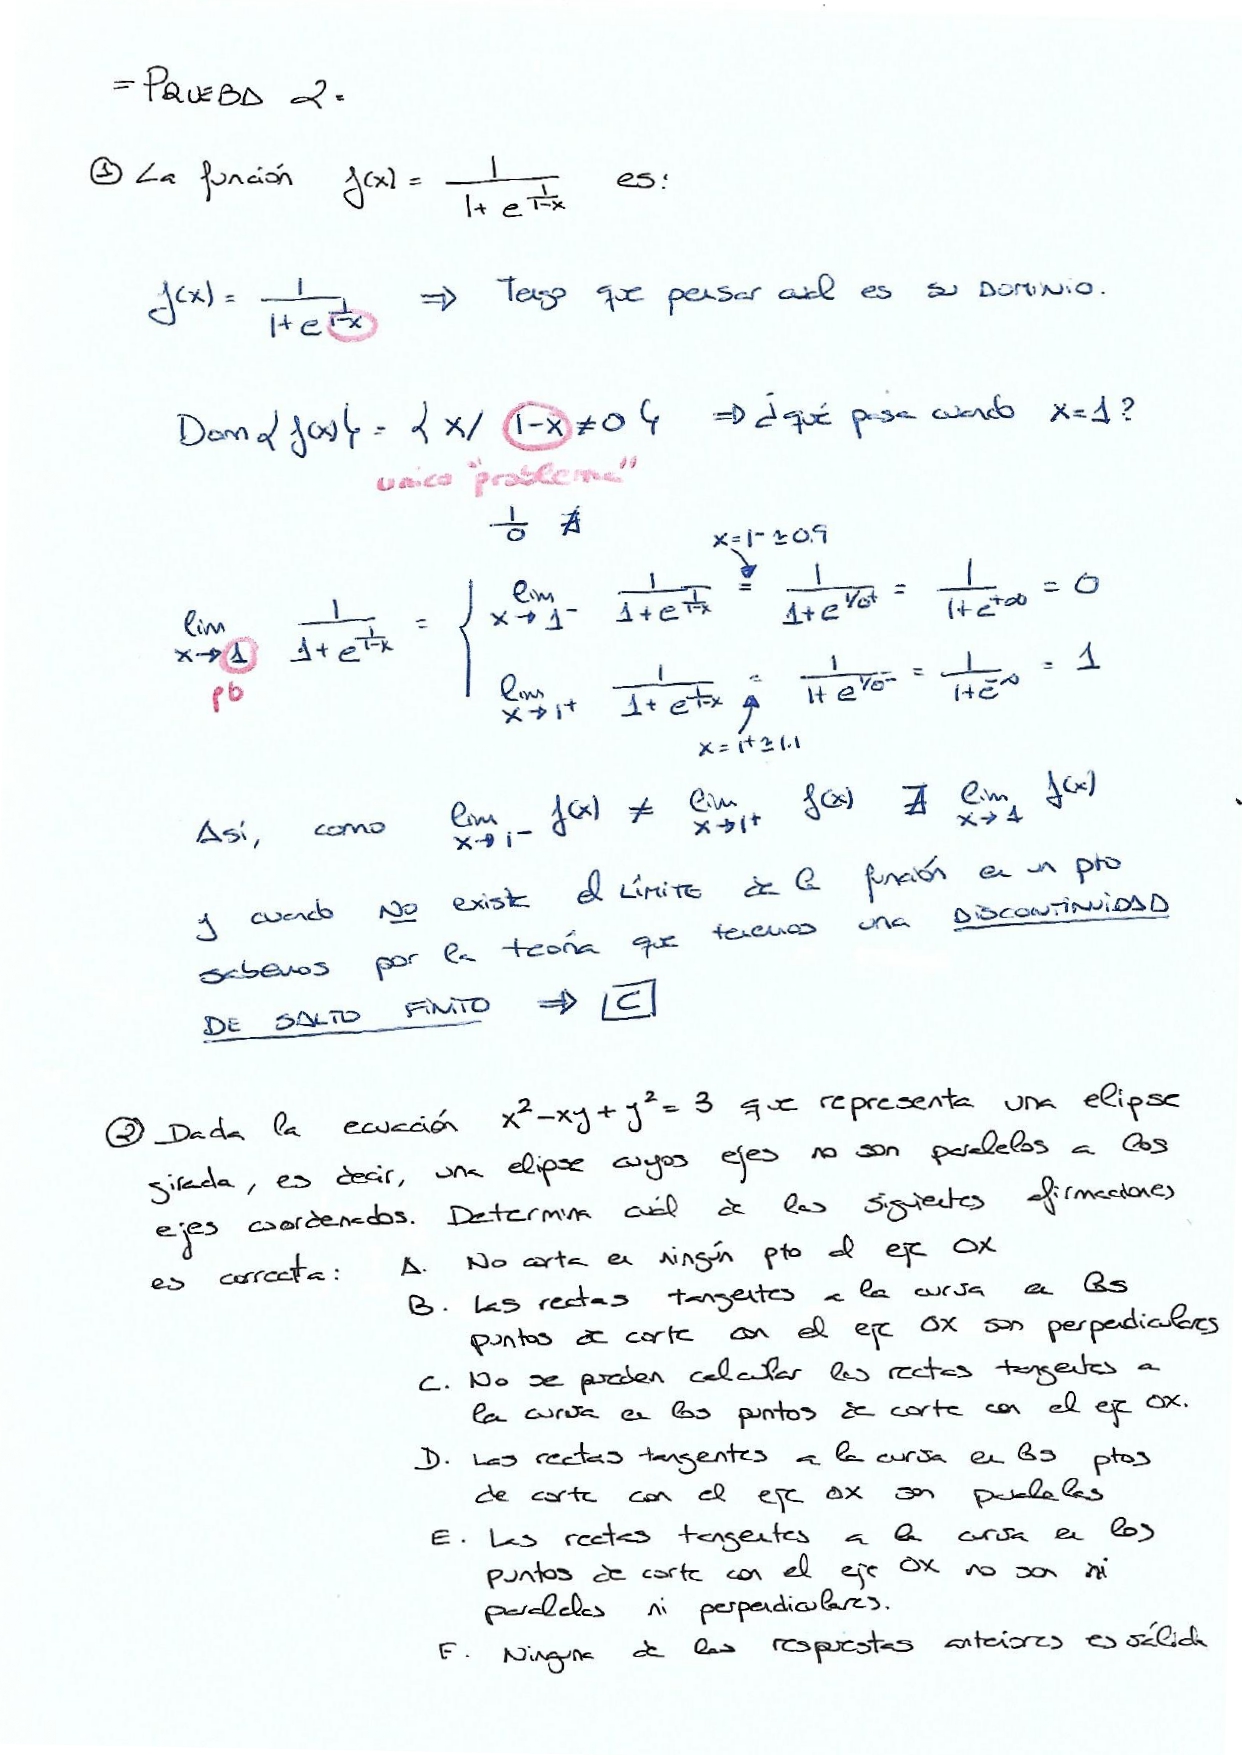 = PRUEBA 2.
① La función f(x) = 1 / (1 + e^(1/(1-x))) es:
f(x) = 1 / (1 + e^(1/(1-x))) ⇒ Tengo que pensar cuál es su DOMINIO.
Dom{f(x)} = {x / 1-x ≠ 0} ⇒ ¿qué pasa cuando x=1?
único "problema"
1/0 ∄
x=1⁻ ≃ 0.9
lim x→1 1 / (1 + e^(1/(1-x))) = { lim x→1⁻ 1 / (1 + e^(1/(1-x))) = 1 / (1 + e^(1/0⁺)) = 1 / (1 + e^(+∞)) = 0
pb
lim x→1⁺ 1 / (1 + e^(1/(1-x))) = 1 / (1 + e^(1/0⁻)) = 1 / (1 + e^(-∞)) = 1
x = 1⁺ ≃ 1.1
Así, como lim x→1⁻ f(x) ≠ lim x→1⁺ f(x) ∄ lim x→1 f(x)
y cuando NO existe el LÍMITE de la función en un pto
sabemos por la teoría que tenemos una DISCONTINUIDAD
DE SALTO FINITO ⇒ C
② Dada la ecuación x² - xy + y² = 3 que representa una elipse
girada, es decir, una elipse cuyos ejes no son paralelos a los
ejes coordenados. Determina cuál de las siguientes afirmaciones
es correcta: A. No corta en ningún pto al eje OX
B. Las rectas tangentes a la curva en los
puntos de corte con el eje OX son perpendiculares
C. No se pueden calcular las rectas tangentes a
la curva en los puntos de corte con el eje OX.
D. Las rectas tangentes a la curva en los ptos
de corte con el eje OX son paralelas
E. Las rectas tangentes a la curva en los
puntos de corte con el eje OX no son ni
paralelas ni perpendiculares.
F. Ninguna de las respuestas anteriores es válida